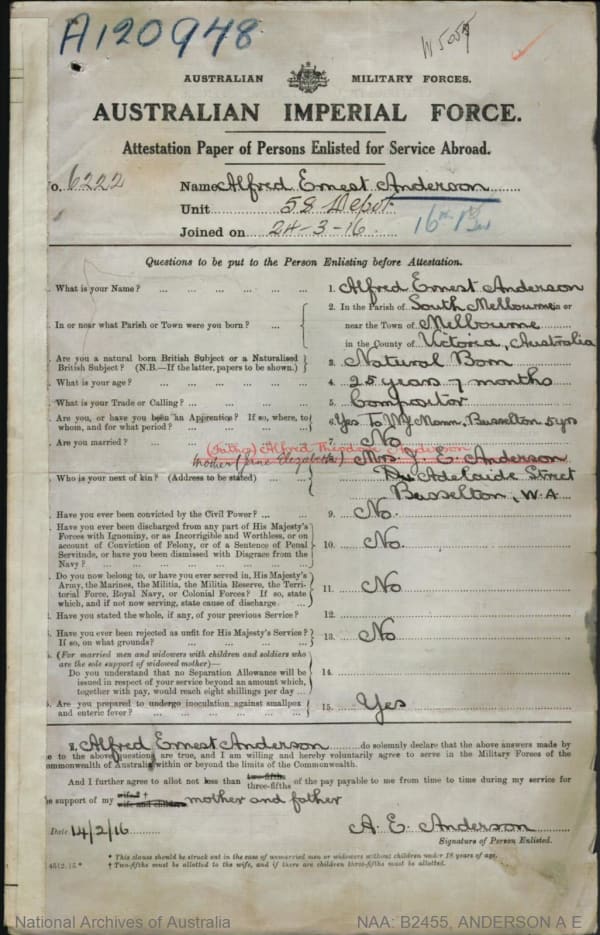 A120948
AUSTRALIAN MILITARY FORCES.
AUSTRALIAN IMPERIAL FORCE.
Attestation Paper of Persons Enlisted for Service Abroad.
o. 6222
Name Alfred Ernest Anderson
Unit 58 Depot
Joined on 24-3-16.
Questions to be put to the Person Enlisting before Attestation.
. What is your Name? ... ... ... ... ... 1. Alfred Ernest Anderson
. In or near what Parish or Town were you born? ... 2. In the Parish of South Melbourne in or
near the Town of Melbourne
in the County of Victoria, Australia
. Are you a natural born British Subject or a Naturalised
British Subject? (N.B.—If the latter, papers to be shown.) 3. Natural Born
. What is your age? ... ... ... ... ... 4. 25 years 7 months
. What is your Trade or Calling? ... ... ... 5. Compositor
. Are you, or have you been an Apprentice? If so, where, to
whom, and for what period? ... ... ... 6. Yes. To Mann, Busselton 5 yrs
. Are you married? ... ... ... ... ... 7. No
(Father) Alfred Theodore Anderson
Mother (Jane Elizabeth) Mrs J. E. Anderson
Who is your next of kin? (Address to be stated) ... Adelaide Street
Busselton, W.A.
. Have you ever been convicted by the Civil Power? ... ... 9. No.
. Have you ever been discharged from any part of His Majesty's
Forces with Ignominy, or as Incorrigible and Worthless, or on
account of Conviction of Felony, or of a Sentence of Penal
Servitude, or have you been dismissed with Disgrace from the
Navy? ... ... ... ... ... ... 10. No.
. Do you now belong to, or have you ever served in, His Majesty's
Army, the Marines, the Militia, the Militia Reserve, the Terri-
torial Force, Royal Navy, or Colonial Forces? If so, state
which, and if not now serving, state cause of discharge. ... 11. No
. Have you stated the whole, if any, of your previous Service? 12.
. Have you ever been rejected as unfit for His Majesty's Service?
If so, on what grounds? ... ... ... ... 13. No
. (For married men and widowers with children and soldiers who
are the sole support of widowed mother)—
Do you understand that no Separation Allowance will be
issued in respect of your service beyond an amount which,
together with pay, would reach eight shillings per day ... 14.
. Are you prepared to undergo inoculation against smallpox
and enteric fever? ... ... ... ... ... 15. Yes
I, Alfred Ernest Anderson do solemnly declare that the above answers made by
me to the above questions are true, and I am willing and hereby voluntarily agree to serve in the Military Forces of the
ommonwealth of Australia within or beyond the limits of the Commonwealth.
And I further agree to allot not less than two-fifths three-fifths of the pay payable to me from time to time during my service for
he support of my wife† wife and children mother and father
Date 14/2/16
A. E. Anderson
Signature of Person Enlisted.
* This clause should be struck out in the case of unmarried men or widowers without children under 18 years of age.
† Two-fifths must be allotted to the wife, and if there are children three-fifths must be allotted.
National Archives of Australia
NAA: B2455, ANDERSON A E